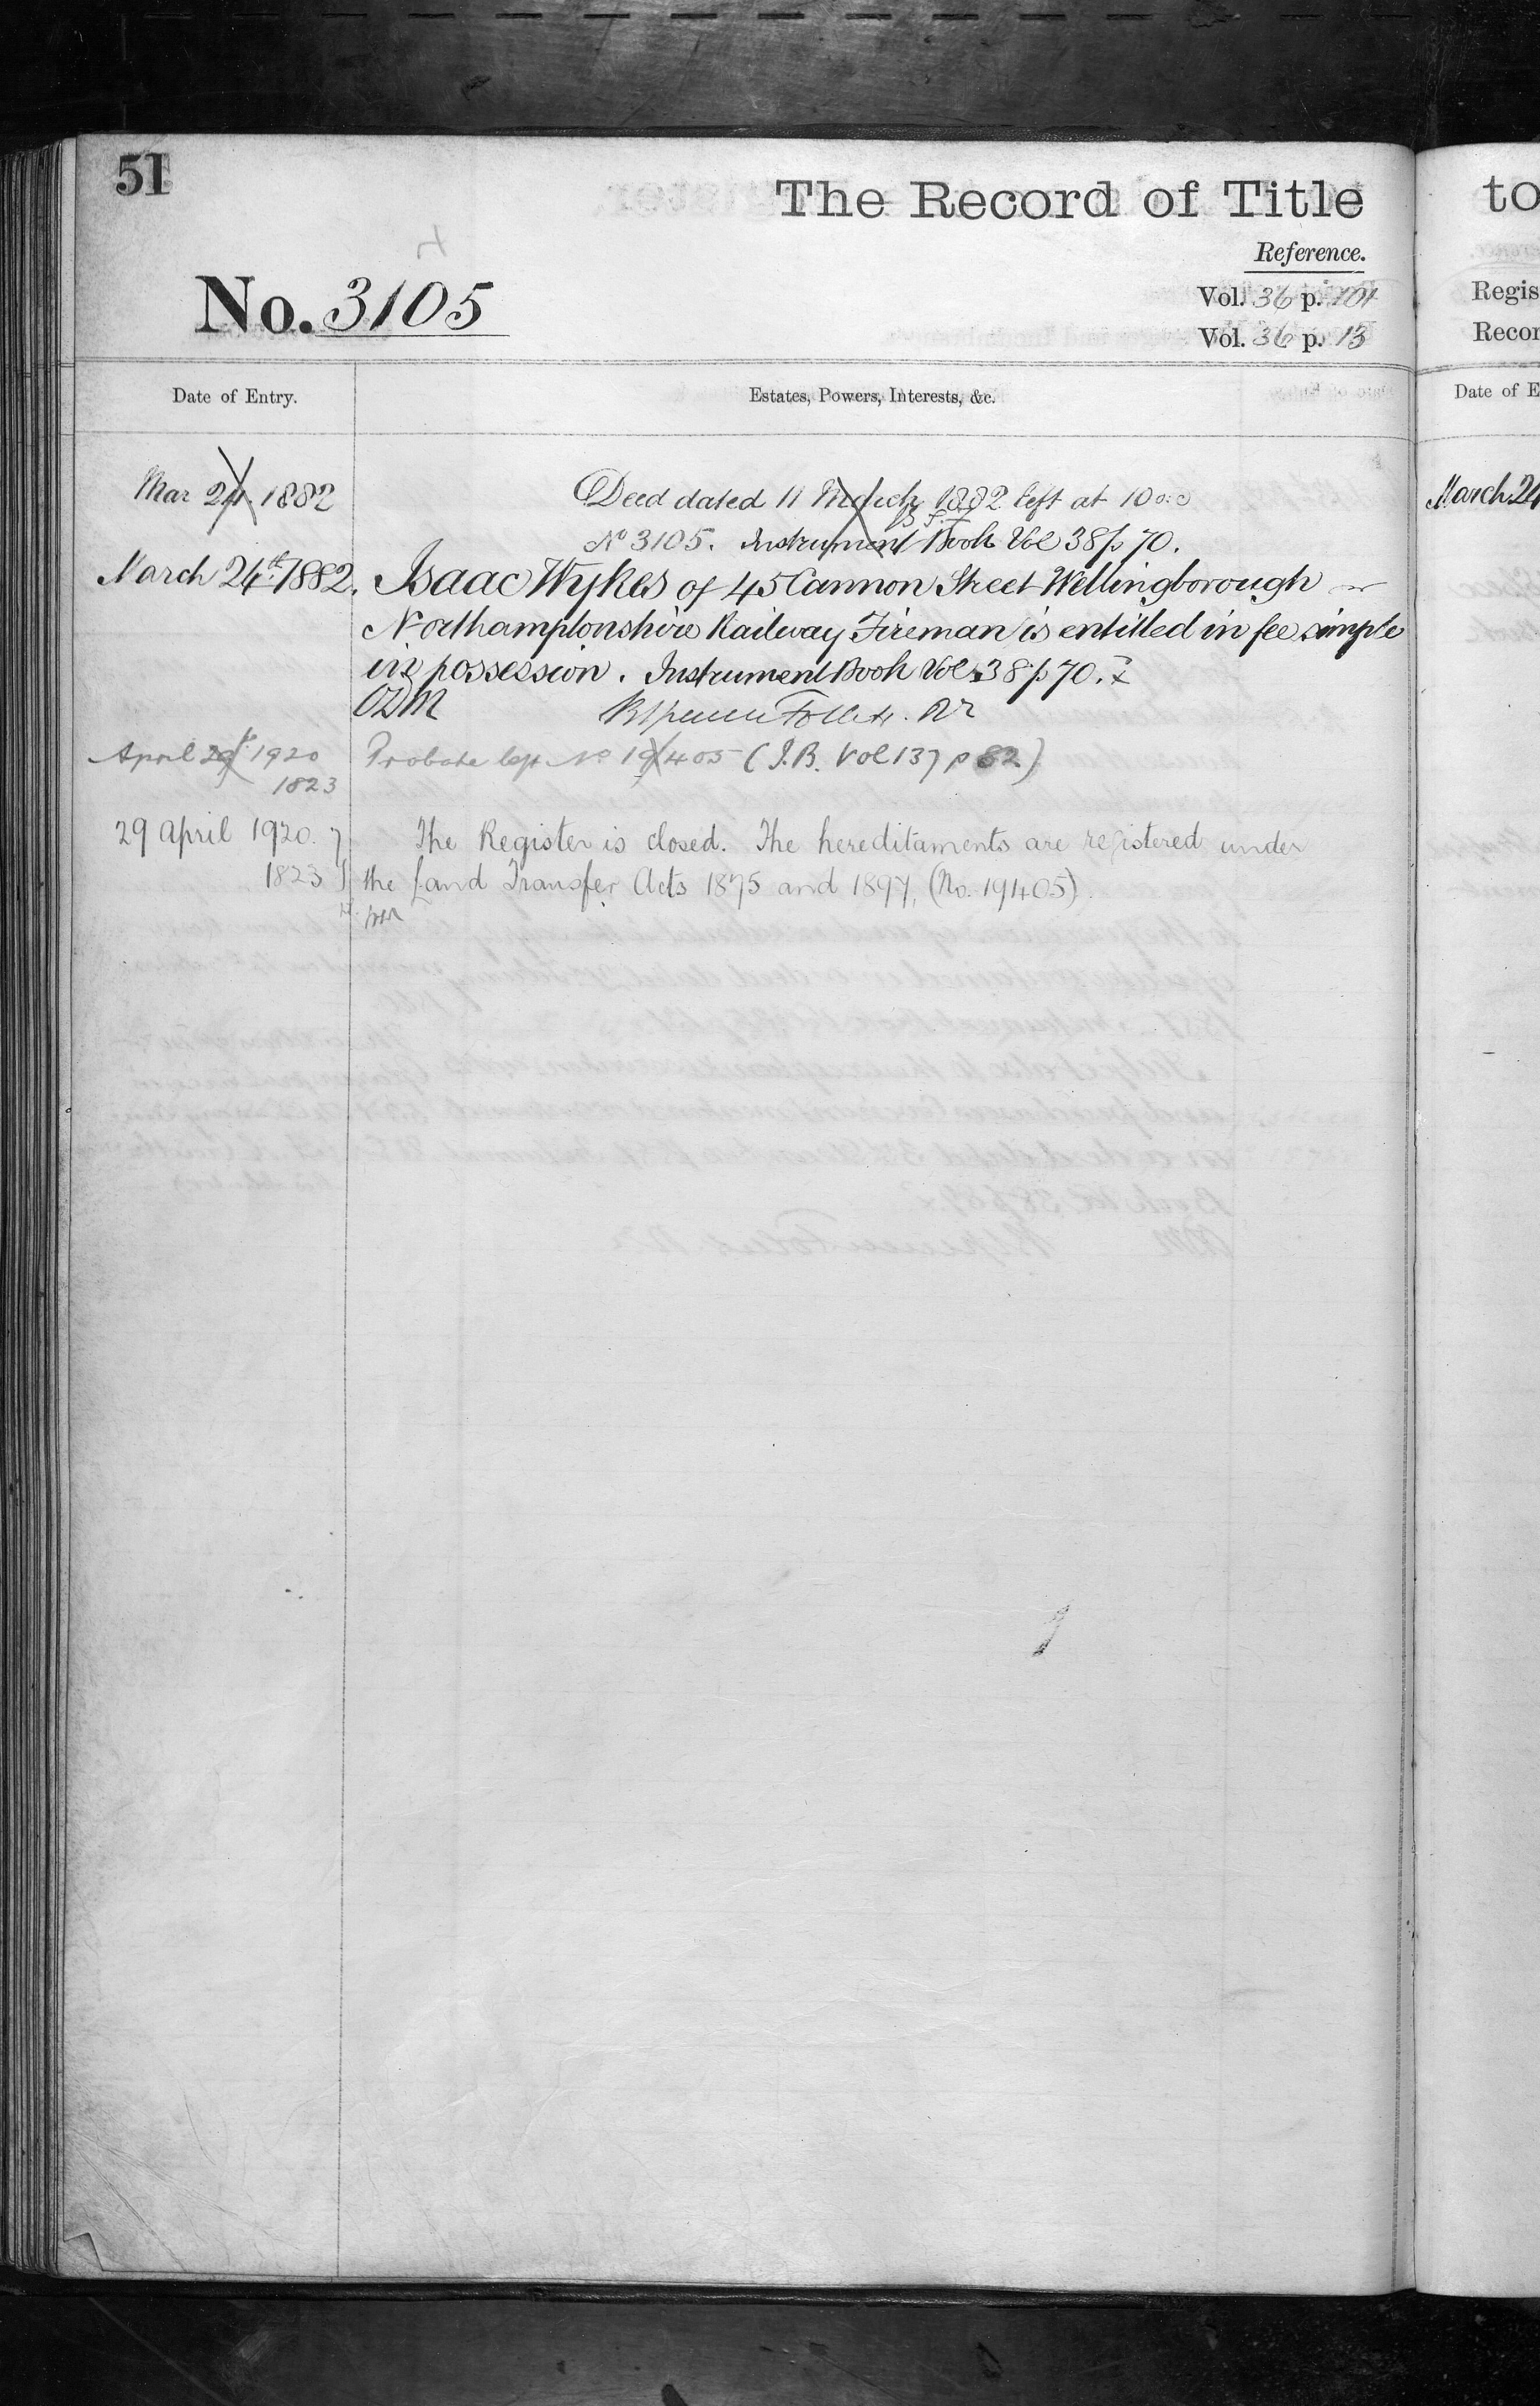 51
The Record of Title
Reference.
No. 3105
Vol. 36 p. 101
Vol. 36 p. 13
Date of Entry.
Estates, Powers, Interests, &c.
Mar 24 1882
Deed dated 11 March 1882 left at 10 o:c
No 3105. Instrument Book Vol 38 p 70.
March 24th 1882.
Isaac Wykes of 45 Cannon Street Wellingborough
Northamptonshire Railway Fireman is entitled in fee simple
in possession. Instrument Book Vol 38 p 70.
Follett. Rr
April 29 1920
1823
Probate left No 19405 (I.B. Vol 137 p 82)
29 April 1920.
1823
The Register is closed. The hereditaments are registered under
the Land Transfer Acts 1875 and 1897, (No. 19405).
to
Regis
Recor
Date of E
March 24